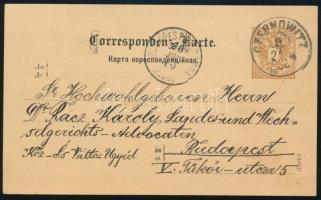 Correspondenz-Karte.
Карта кореспонденційна.
CZERNOWITZ
BUDAPEST
Sr Hochwohlgeboren Herrn
Dr Racz Károly, Landes und Wech-
selgerichts-Advocaten
Köz- és Váltó Ügyéd
in Budapest
V. Tükör-utcza 5